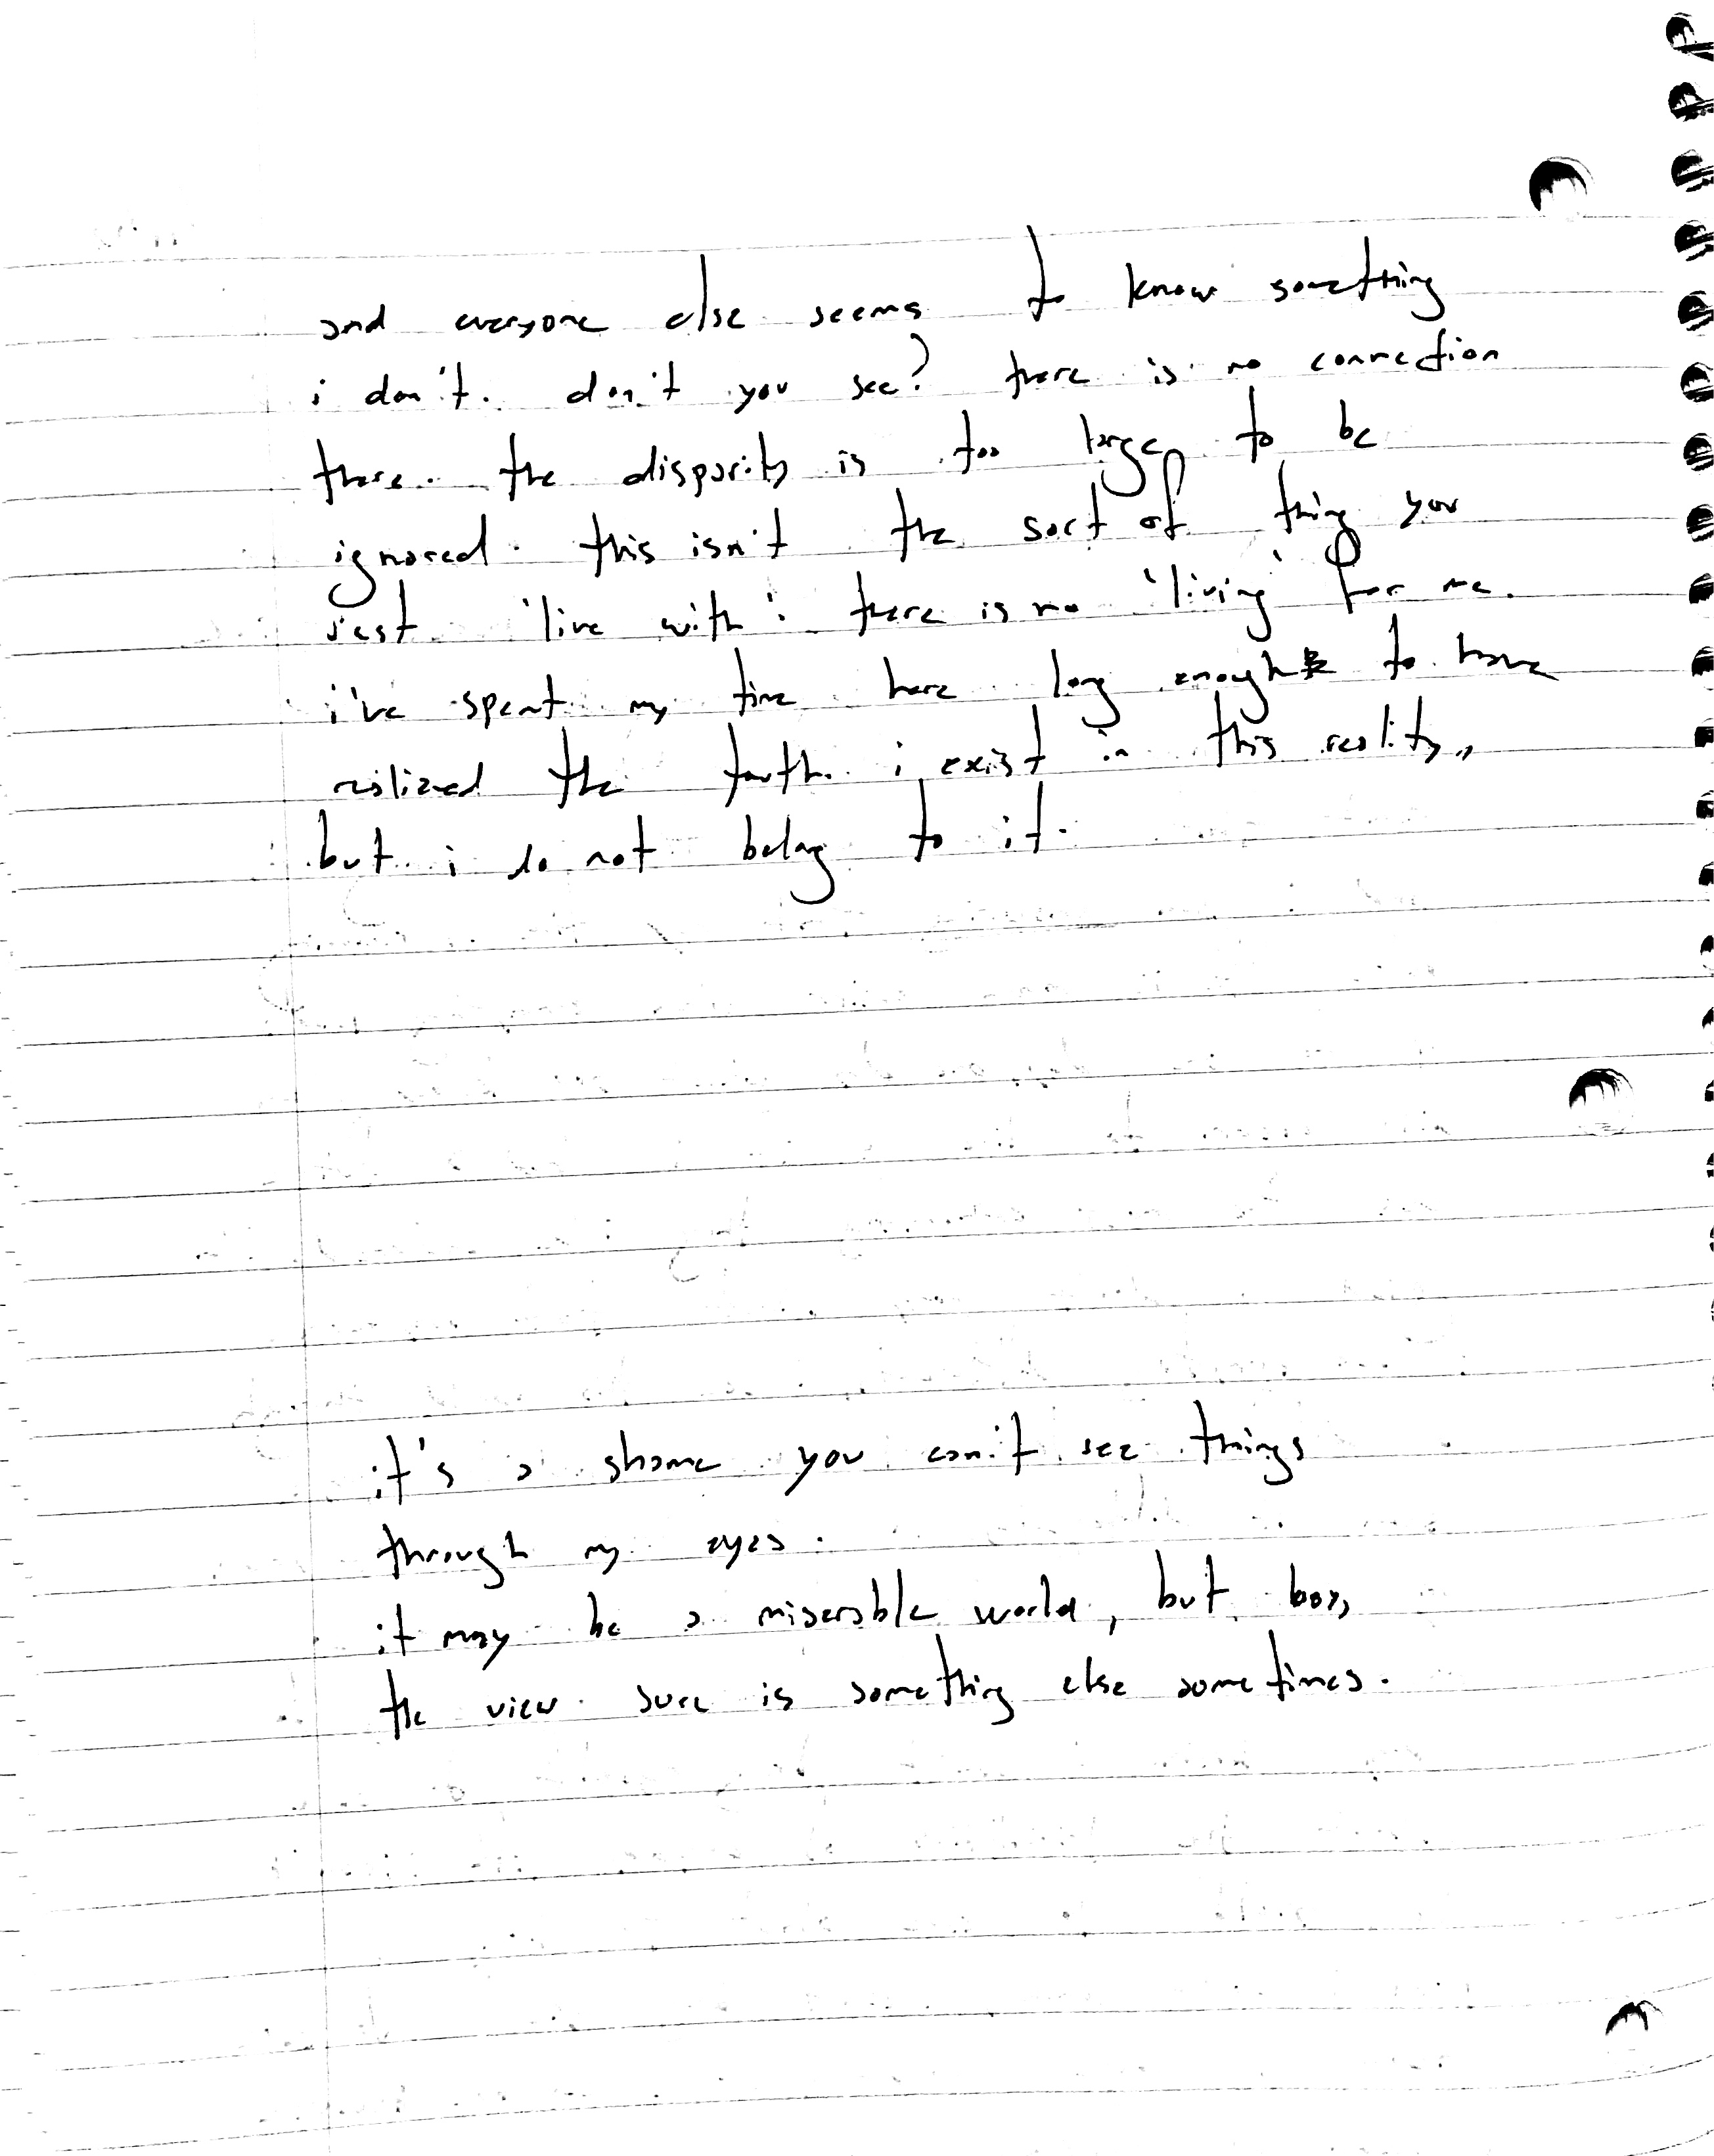 and everyone else seems to know something
i don't. don't you see? there is no connection
there. the disparity is too large to be
ignored. this isn't the sort of thing you
just 'live with'. there is no 'living' for me.
i've spent my time here long enough to have
realized the truth. i exist in this reality,
but i do not belong to it.
it's a shame you can't see things
through my eyes.
it may be a miserable world, but boy,
the view sure is something else sometimes.